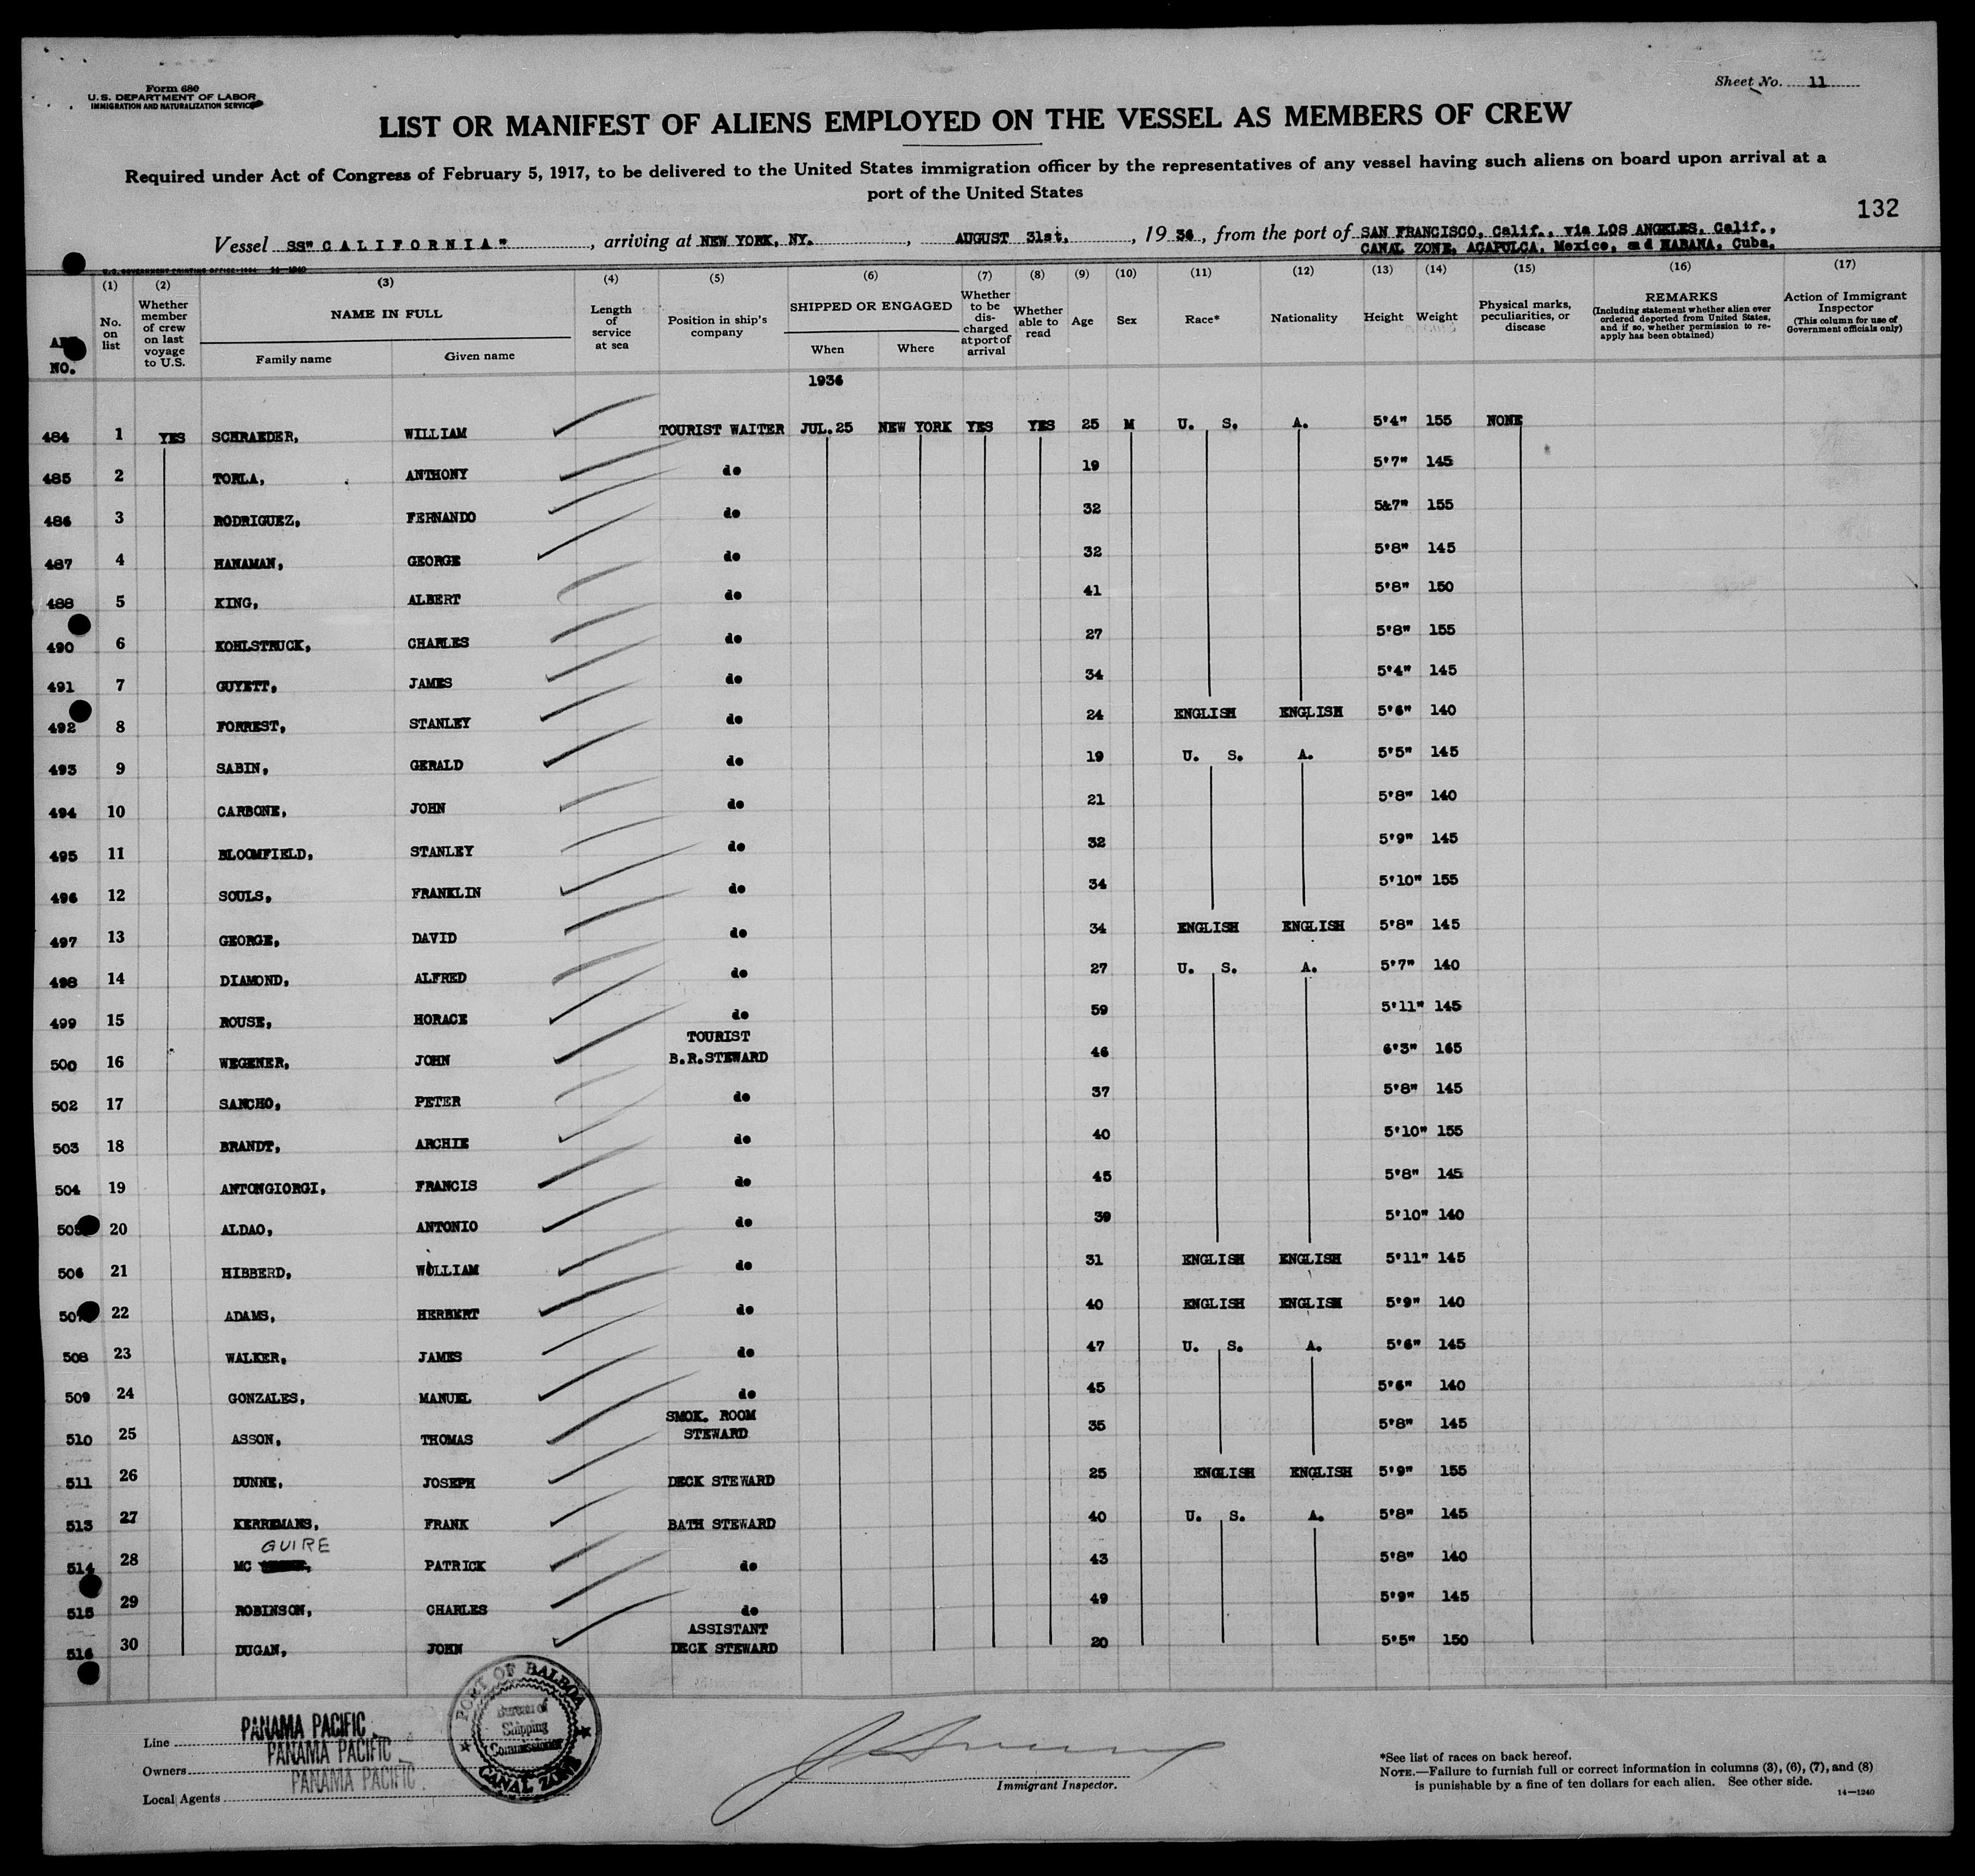 Form 680
U.S. DEPARTMENT OF LABOR
IMMIGRATION AND NATURALIZATION SERVICE
Sheet No. 11
LIST OR MANIFEST OF ALIENS EMPLOYED ON THE VESSEL AS MEMBERS OF CREW
Required under Act of Congress of February 5, 1917, to be delivered to the United States immigration officer by the representatives of any vessel having such aliens on board upon arrival at a
port of the United States
132
Vessel SS" CALIFORNIA", arriving at NEW YORK, NY., AUGUST 31st, 1936, from the port of SAN FRANCISCO, Calif., via LOS ANGELES, Calif.,
CANAL ZONE, ACAPULCA, Mexico, and HABANA, Cuba.
(1) (2) (3) (4) (5) (6) (7) (8) (9) (10) (11) (12) (13) (14) (15) (16) (17)
NO.
No. on list
Whether member of crew on last voyage to U.S.
NAME IN FULL
Family name Given name
Length of service at sea
Position in ship's company
SHIPPED OR ENGAGED
When Where
Whether to be discharged at port of arrival
Whether able to read
Age Sex Race* Nationality Height Weight
Physical marks, peculiarities, or disease
REMARKS
(Including statement whether alien ever ordered deported from United States, and if so, whether permission to reapply has been obtained)
Action of Immigrant Inspector
(This column for use of Government officials only)
1936
484 1 YES SCHRAEDER, WILLIAM TOURIST WAITER JUL.25 NEW YORK YES YES 25 M U. S. A. 5'4" 155 NONE
485 2 TORLA, ANTHONY do 19 5'7" 145
486 3 RODRIGUEZ, FERNANDO do 32 5&7" 155
487 4 HANAMAN, GEORGE do 32 5'8" 145
488 5 KING, ALBERT do 41 5'8" 150
490 6 KOHLSTRUCK, CHARLES do 27 5'8" 155
491 7 GUYETT, JAMES do 34 5'4" 145
492 8 FORREST, STANLEY do 24 ENGLISH ENGLISH 5'6" 140
493 9 SABIN, GERALD do 19 U. S. A. 5'5" 145
494 10 CARBONE, JOHN do 21 5'8" 140
495 11 BLOOMFIELD, STANLEY do 32 5'9" 145
496 12 SOULS, FRANKLIN do 34 5'10" 155
497 13 GEORGE, DAVID do 34 ENGLISH ENGLISH 5'8" 145
498 14 DIAMOND, ALFRED do 27 U. S. A. 5'7" 140
499 15 ROUSE, HORACE do 59 5'11" 145
500 16 WEGENER, JOHN TOURIST B.R.STEWARD 46 6'3" 165
502 17 SANCHO, PETER do 37 5'8" 145
503 18 BRANDT, ARCHIE do 40 5'10" 155
504 19 ANTONGIORGI, FRANCIS do 45 5'8" 145
505 20 ALDAO, ANTONIO do 39 5'10" 140
506 21 HIBBERD, WILLIAM do 31 ENGLISH ENGLISH 5'11" 145
507 22 ADAMS, HERBERT do 40 ENGLISH ENGLISH 5'9" 140
508 23 WALKER, JAMES do 47 U. S. A. 5'6" 145
509 24 GONZALES, MANUEL do 45 5'6" 140
510 25 ASSON, THOMAS SMOK. ROOM STEWARD 35 5'8" 145
511 26 DUNNE, JOSEPH DECK STEWARD 25 ENGLISH ENGLISH 5'9" 155
513 27 KERREMANS, FRANK BATH STEWARD 40 U. S. A. 5'8" 145
514 28 MC GUIRE PATRICK do 43 5'8" 140
515 29 ROBINSON, CHARLES do 49 5'9" 145
516 30 DUGAN, JOHN ASSISTANT DECK STEWARD 20 5'5" 150
Line PANAMA PACIFIC
Owners PANAMA PACIFIC
Local Agents PANAMA PACIFIC
PORT OF BALBOA
Bureau of
Shipping
Commissioner
CANAL ZONE
Immigrant Inspector.
*See list of races on back hereof.
NOTE.—Failure to furnish full or correct information in columns (3), (6), (7), and (8)
is punishable by a fine of ten dollars for each alien. See other side.
14—1240